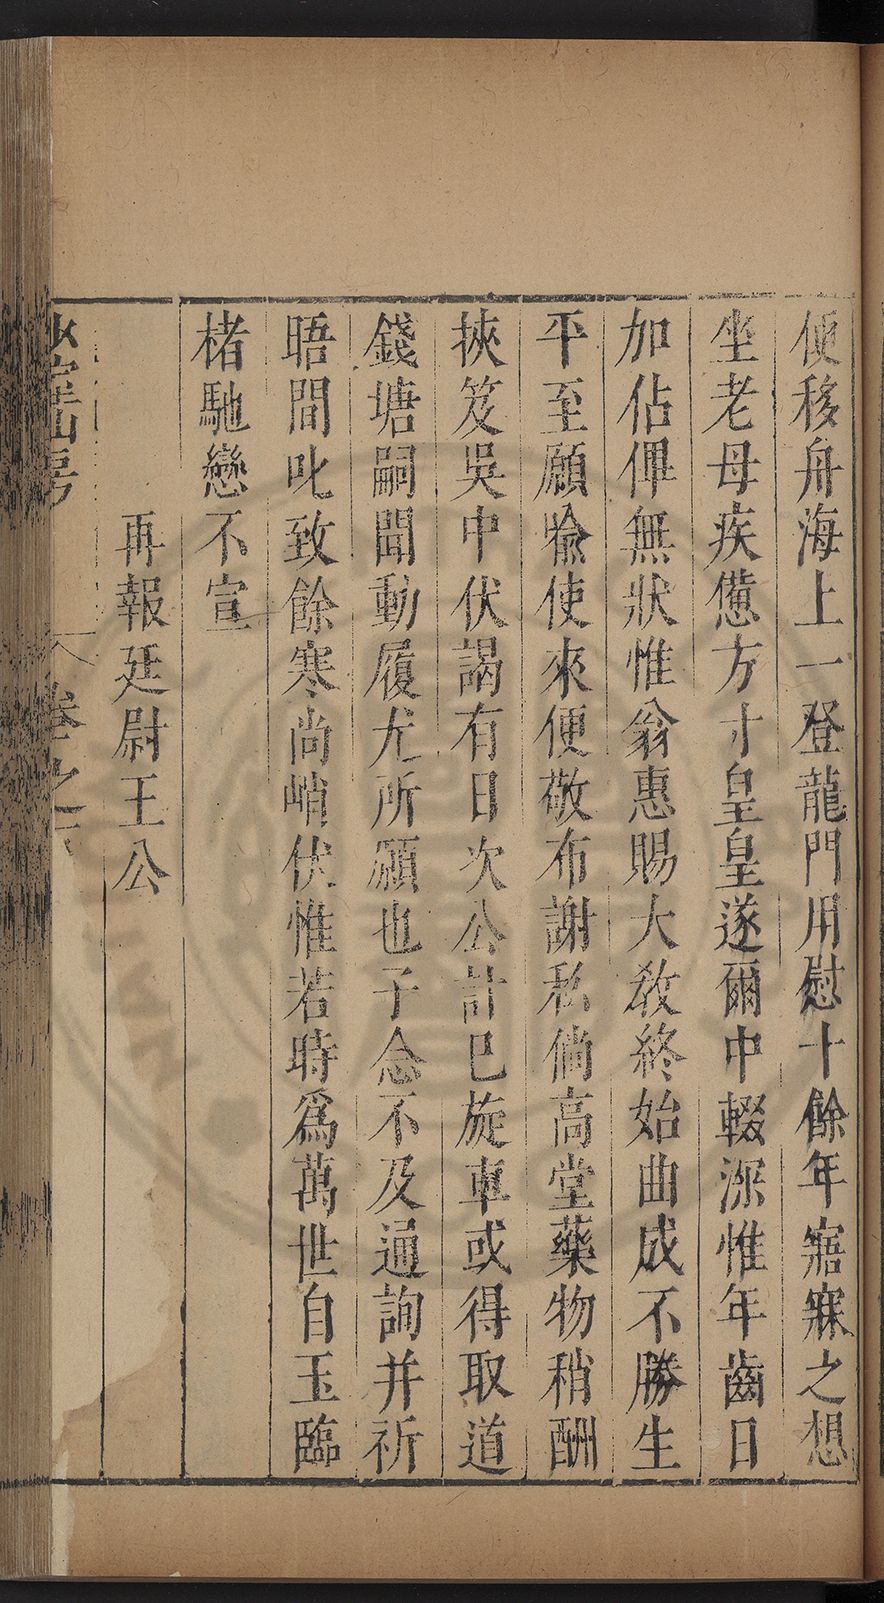 便移舟海上一登龍門用慰十餘年寤寐之想
坐老母疾憊方寸皇皇遂爾中輟深惟年齒日
加佔俾無狀惟翁惠賜大教終始曲成不勝生
平至願喩使來便敬布謝私倘高堂藥物稍酬
挾笈吳中伏謁有日次公計已旋車或得取道
錢塘嗣聞動履尤所願也子念不及通詢并祈
晤間叱致餘寒尚峭伏惟若時爲萬世自玉臨
楮馳戀不宣
再報廷尉王公
山房
卷之